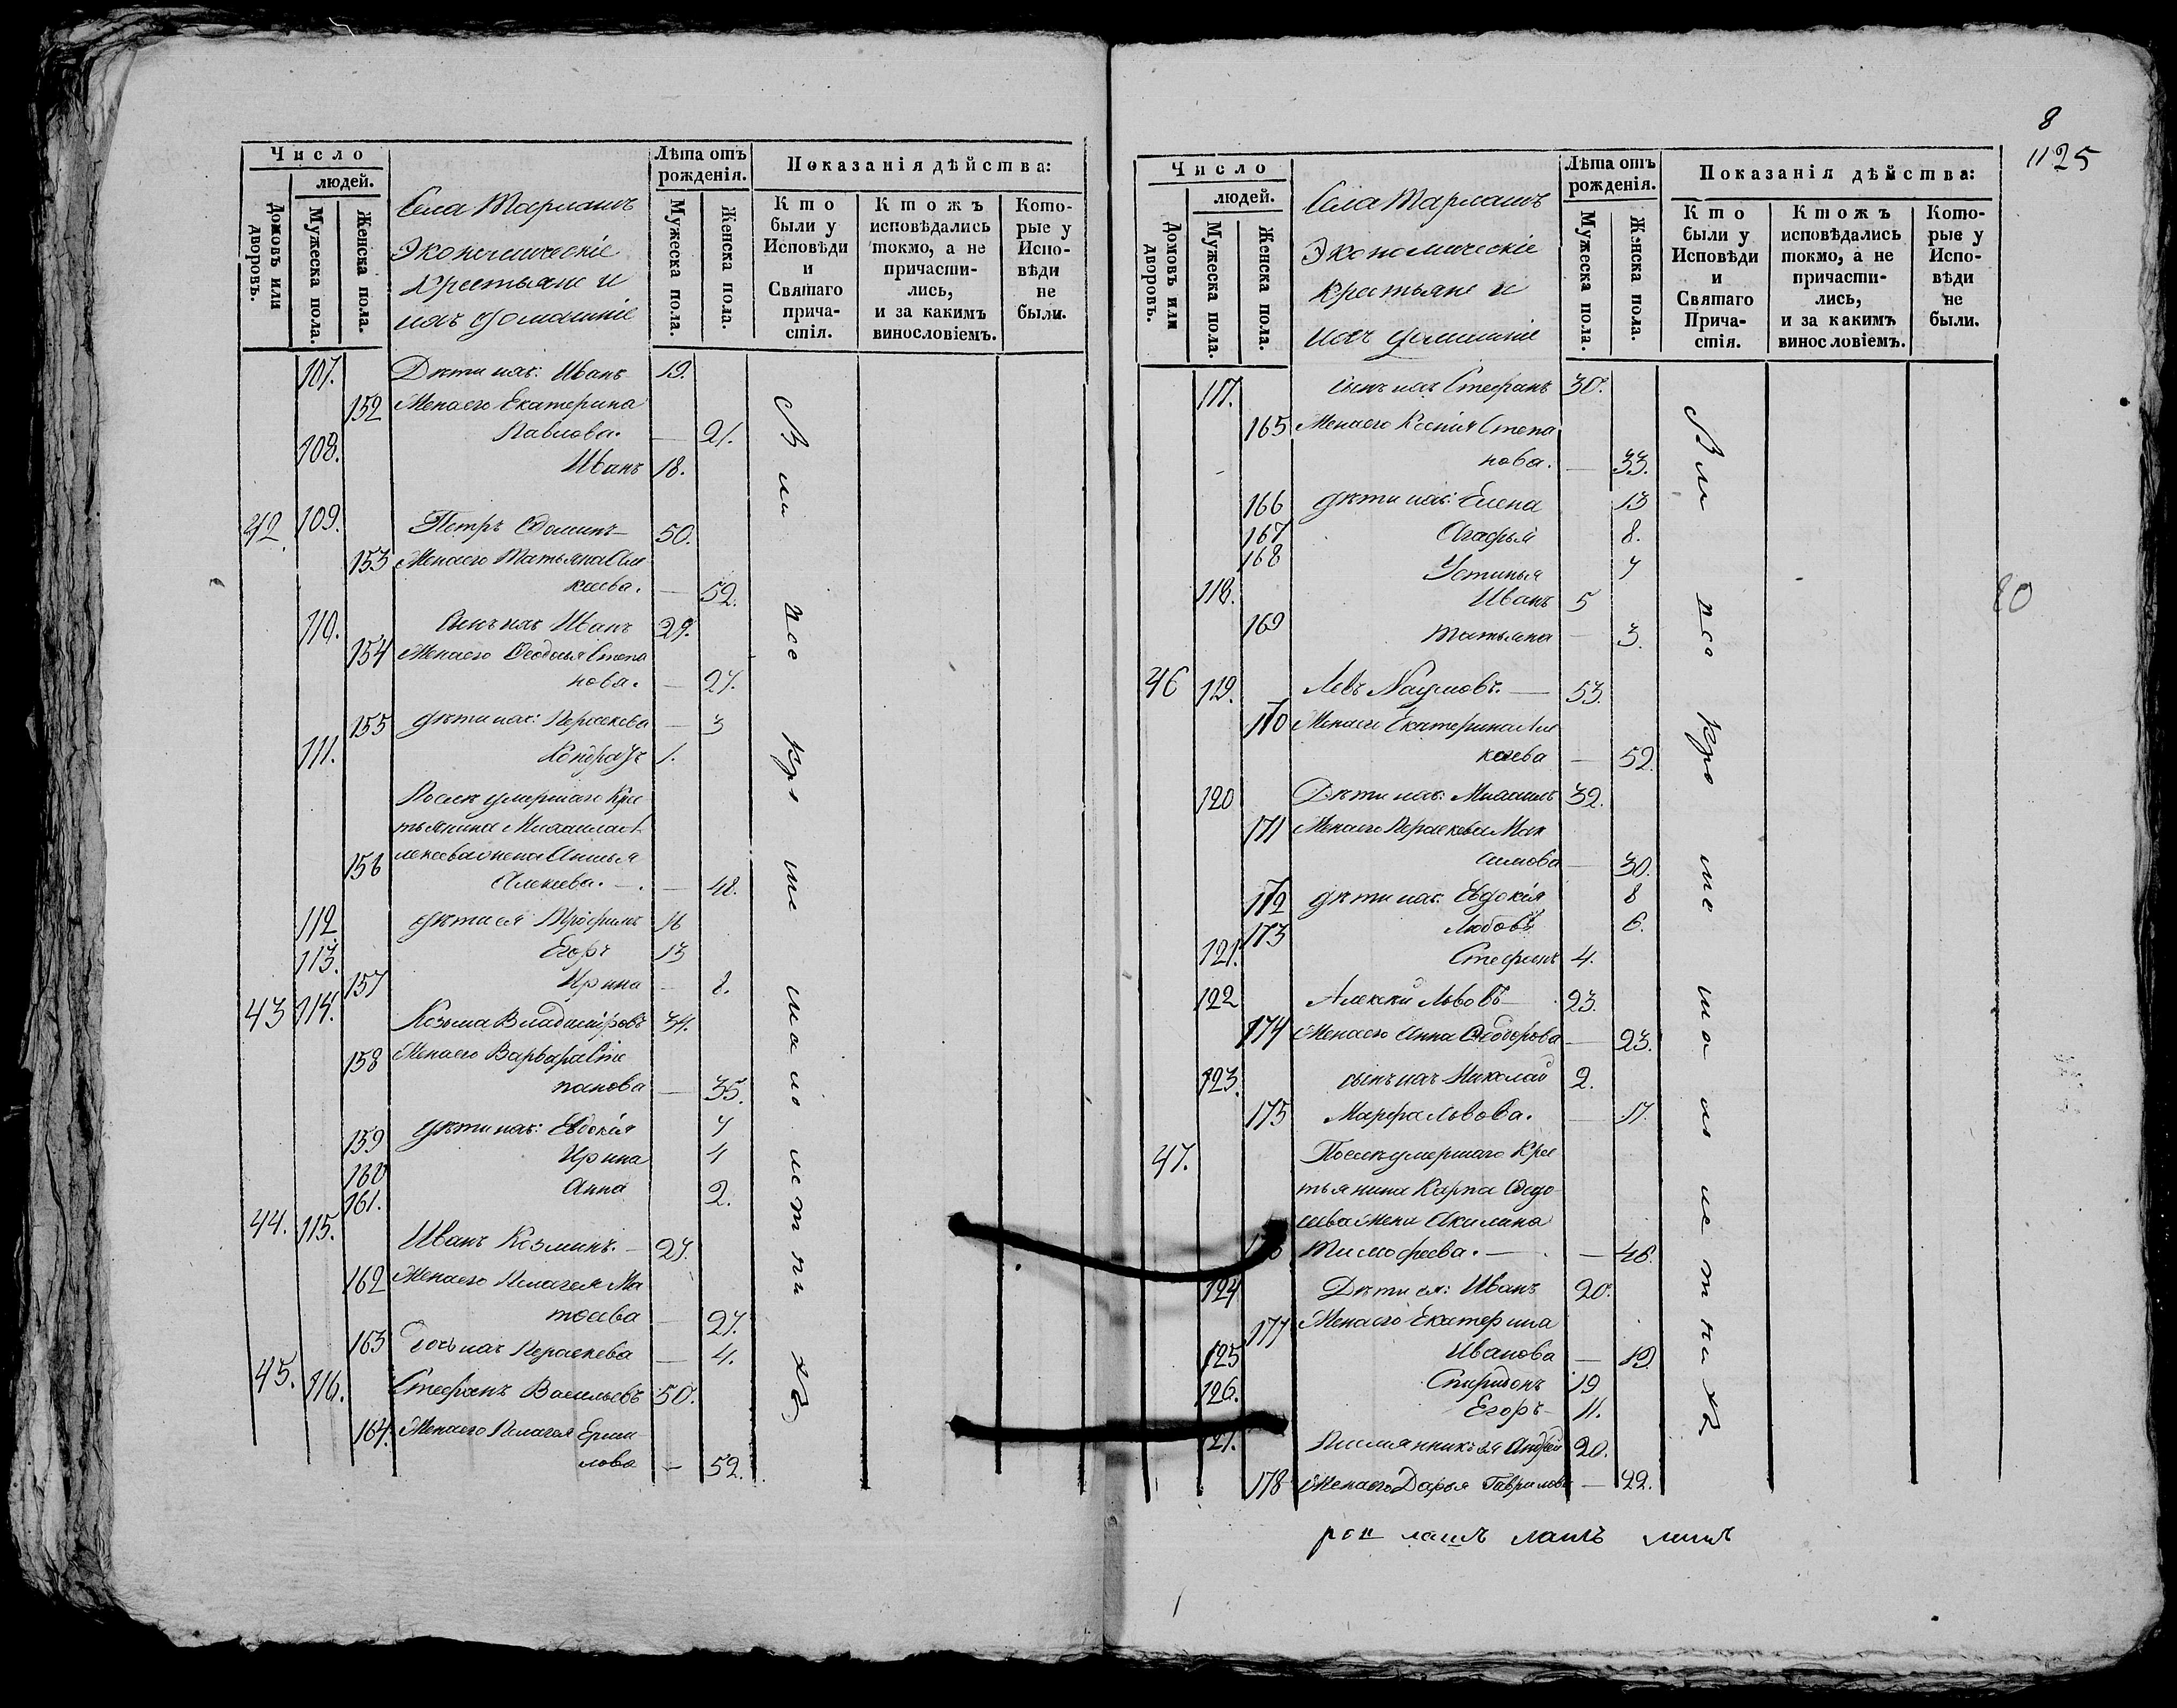 Число
людей.
Домовъ или дворовъ.
Мужеска пола.
Женска пола.
Села Тармашъ
Экономическіе
Крестьяне и
ихъ домашніе
Лѣта отъ рожденія.
Мужеска пола.
Женска пола.
Показанія дѣйства:
Кто были у Исповѣди и Святаго причастія.
Ктожъ исповѣдались токмо, а не причастились, и за какимъ винословіемъ.
Которые у Исповѣди не были.
107. Дѣти ихъ: Иванъ 19.
152 Жена его Екатерина
Павлова. — 21.
108. Иванъ 18.
42. 109. Петръ Ѳоминъ 50.
153 Жена его Татьяна Але
ксеева. — 52.
110. Сынъ ихъ Иванъ 29.
154 Жена его Ѳеодосья Степа
нова. — 27.
155 дѣти ихъ: Параскева — 3
111. Кондратъ 1.
Послѣ умершаго Кре
стьянина Михаила А
156 лексеева жена
Алексеева. — 48.
112 дѣти ея Трофимъ 16
113. Егоръ 13
157 Ирина — 8.
43 114. Козьма Владиміровъ 34.
158 Жена его Варвара Сте
панова — 35.
159 дѣти ихъ: Евдокія 7
160 Ирина 4
161. Анна 2.
44. 115. Иванъ Козминъ. 27.
162 Жена его Пелагея Ма
тѳеева 27.
163 дочь ихъ Параскева — 4.
45. 116. Стефанъ Васильевъ 50.
164. Жена его Пелагея Ерми
лова — 52.
Вси нео кро ме ма ло лет ны хъ
8
1125
Число
людей.
Домовъ или дворовъ.
Мужеска пола.
Женска пола.
Села Тармашъ
Экономическіе
Крестьяне и
ихъ домашніе
Лѣта отъ рожденія.
Мужеска пола.
Женска пола.
Показанія дѣйства:
Кто были у Исповѣди и Святаго Причастія.
Ктожъ исповѣдались токмо, а не причастились, и за какимъ винословіемъ.
Которые у Исповѣди не были.
117. сынъ ихъ Стефанъ 30.
165 Жена его Ксенія Степа
нова. — 33.
166 дѣти ихъ: Елена 13
167 Агафья 8.
168 Устинья 7
118. Иванъ 5
169 Татьяна — 3.
46 119. Левъ Наумовъ. — 53.
170 Жена его Екатерина Але
ксеева — 52.
120 Дѣти ихъ: Михаилъ 32.
171 Жена его Параскева Мак
симова — 30.
172 дѣти ихъ: Евдокія 8
173 Любовь 6.
121. Стефанъ 4.
122 Алексѣй Львовъ 23.
174 Жена его Анна Ѳеодорова — 23.
123. сынъ ихъ Николай 2.
175 Марфа Львова. — 17.
47. Послѣ умершаго Кре
стьянина Карпа Ѳедо
сеева жена Акилина
Тимофеева. — 48.
124 Дѣти ея: Иванъ 20.
177 Жена его Екатерина
Иванова — 19.
125 Спиридонъ 19
126. Егоръ 11.
127. Племянникъ ея Андрей 20.
178 Жена его Дарья Гаврилова — 22.
кро ме ма ло ле тны хъ